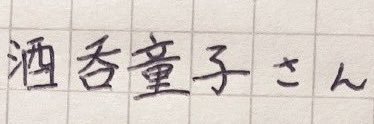 酒呑童子さん